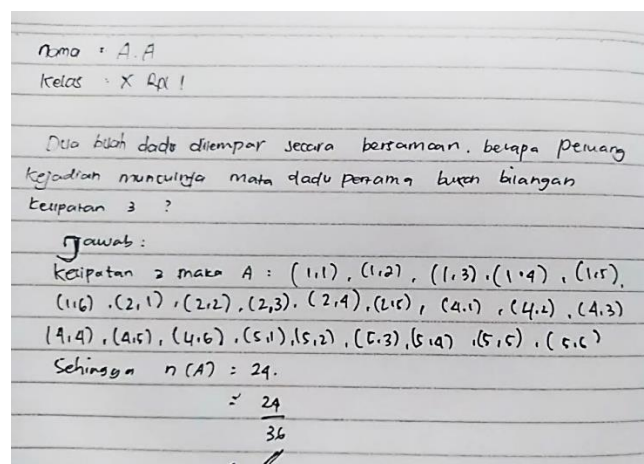 Nama : A.A
Kelas : X RPL 1
Dua buah dadu dilempar secara bersamaan. berapa peluang
kejadian munculnya mata dadu pertama bukan bilangan
kelipatan 3 ?
Jawab :
kelipatan 3 maka A : (1,1), (1,2), (1,3), (1,4), (1,5),
(1,6), (2,1), (2,2), (2,3), (2,4), (2,5), (4,1), (4,2), (4,3)
(4,4), (4,5), (4,6), (5,1), (5,2), (5,3), (5,4), (5,5), (5,6)
Sehingga n(A) = 24.
= 24
36